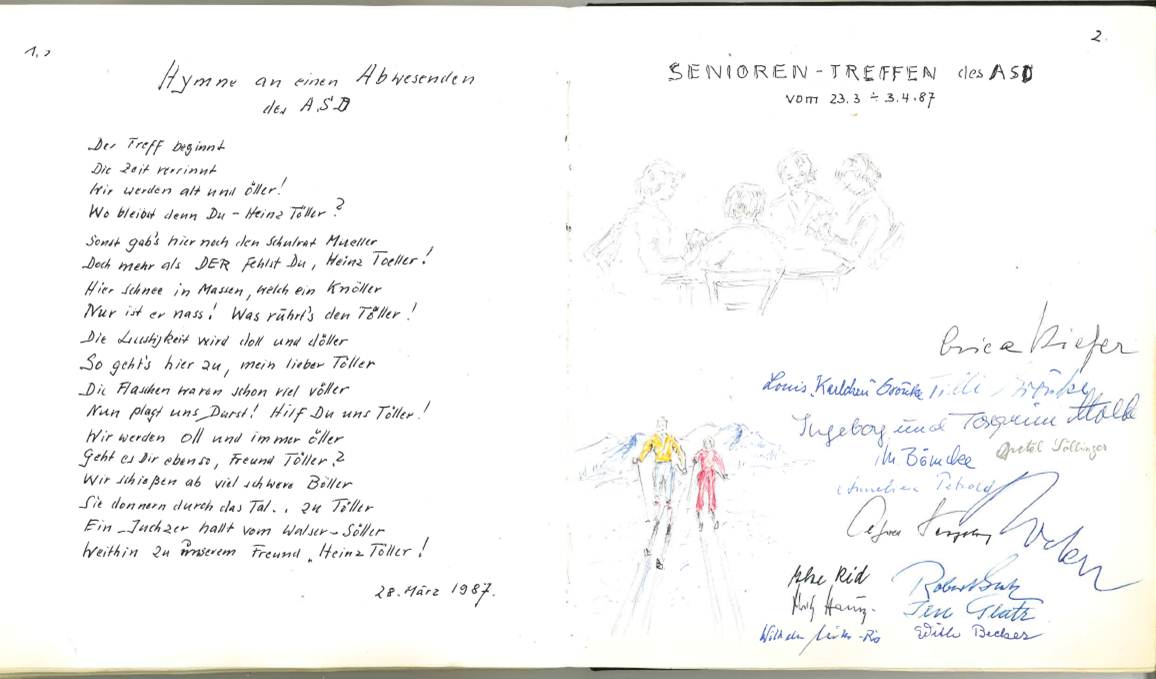 1.,
Hymne an einen Abwesenden
des A.S.D
Der Treff beginnt
Die Zeit verrinnt
Wir werden alt und öller!
Wo bleibst denn Du - Heinz Töller?
Sonst gab's hier noch den Schulrat Mueller
Doch mehr als DER fehlst Du, Heinz Toeller!
Hier Schnee in Massen, welch ein Knöller
Nur ist er nass! Was rührt's den Töller!
Die Lustigkeit wird doll und döller
So geht's hier zu, mein lieber Töller
Die Flaschen waren schon viel völler
Nun plagt uns Durst! Hilf Du uns Töller!
Wir werden oll und immer öller
Geht es Dir ebenso, Freund Töller?
Wir schießen ab viel schwere Böller
Sie donnern durch das Tal.. zu Töller
Ein Juchzer hallt vom Walser-Söller
Weithin zu unserem Freund, Heinz Töller!
28. März 1987.
2.
SENIOREN-TREFFEN des ASD
vom 23.3 ÷ 3.4.87
Erica Kiefer
Louis "Karlchen"
Ingeborg und
Bömcke
Ilse Rid
Robert
Wilhelm
Becker